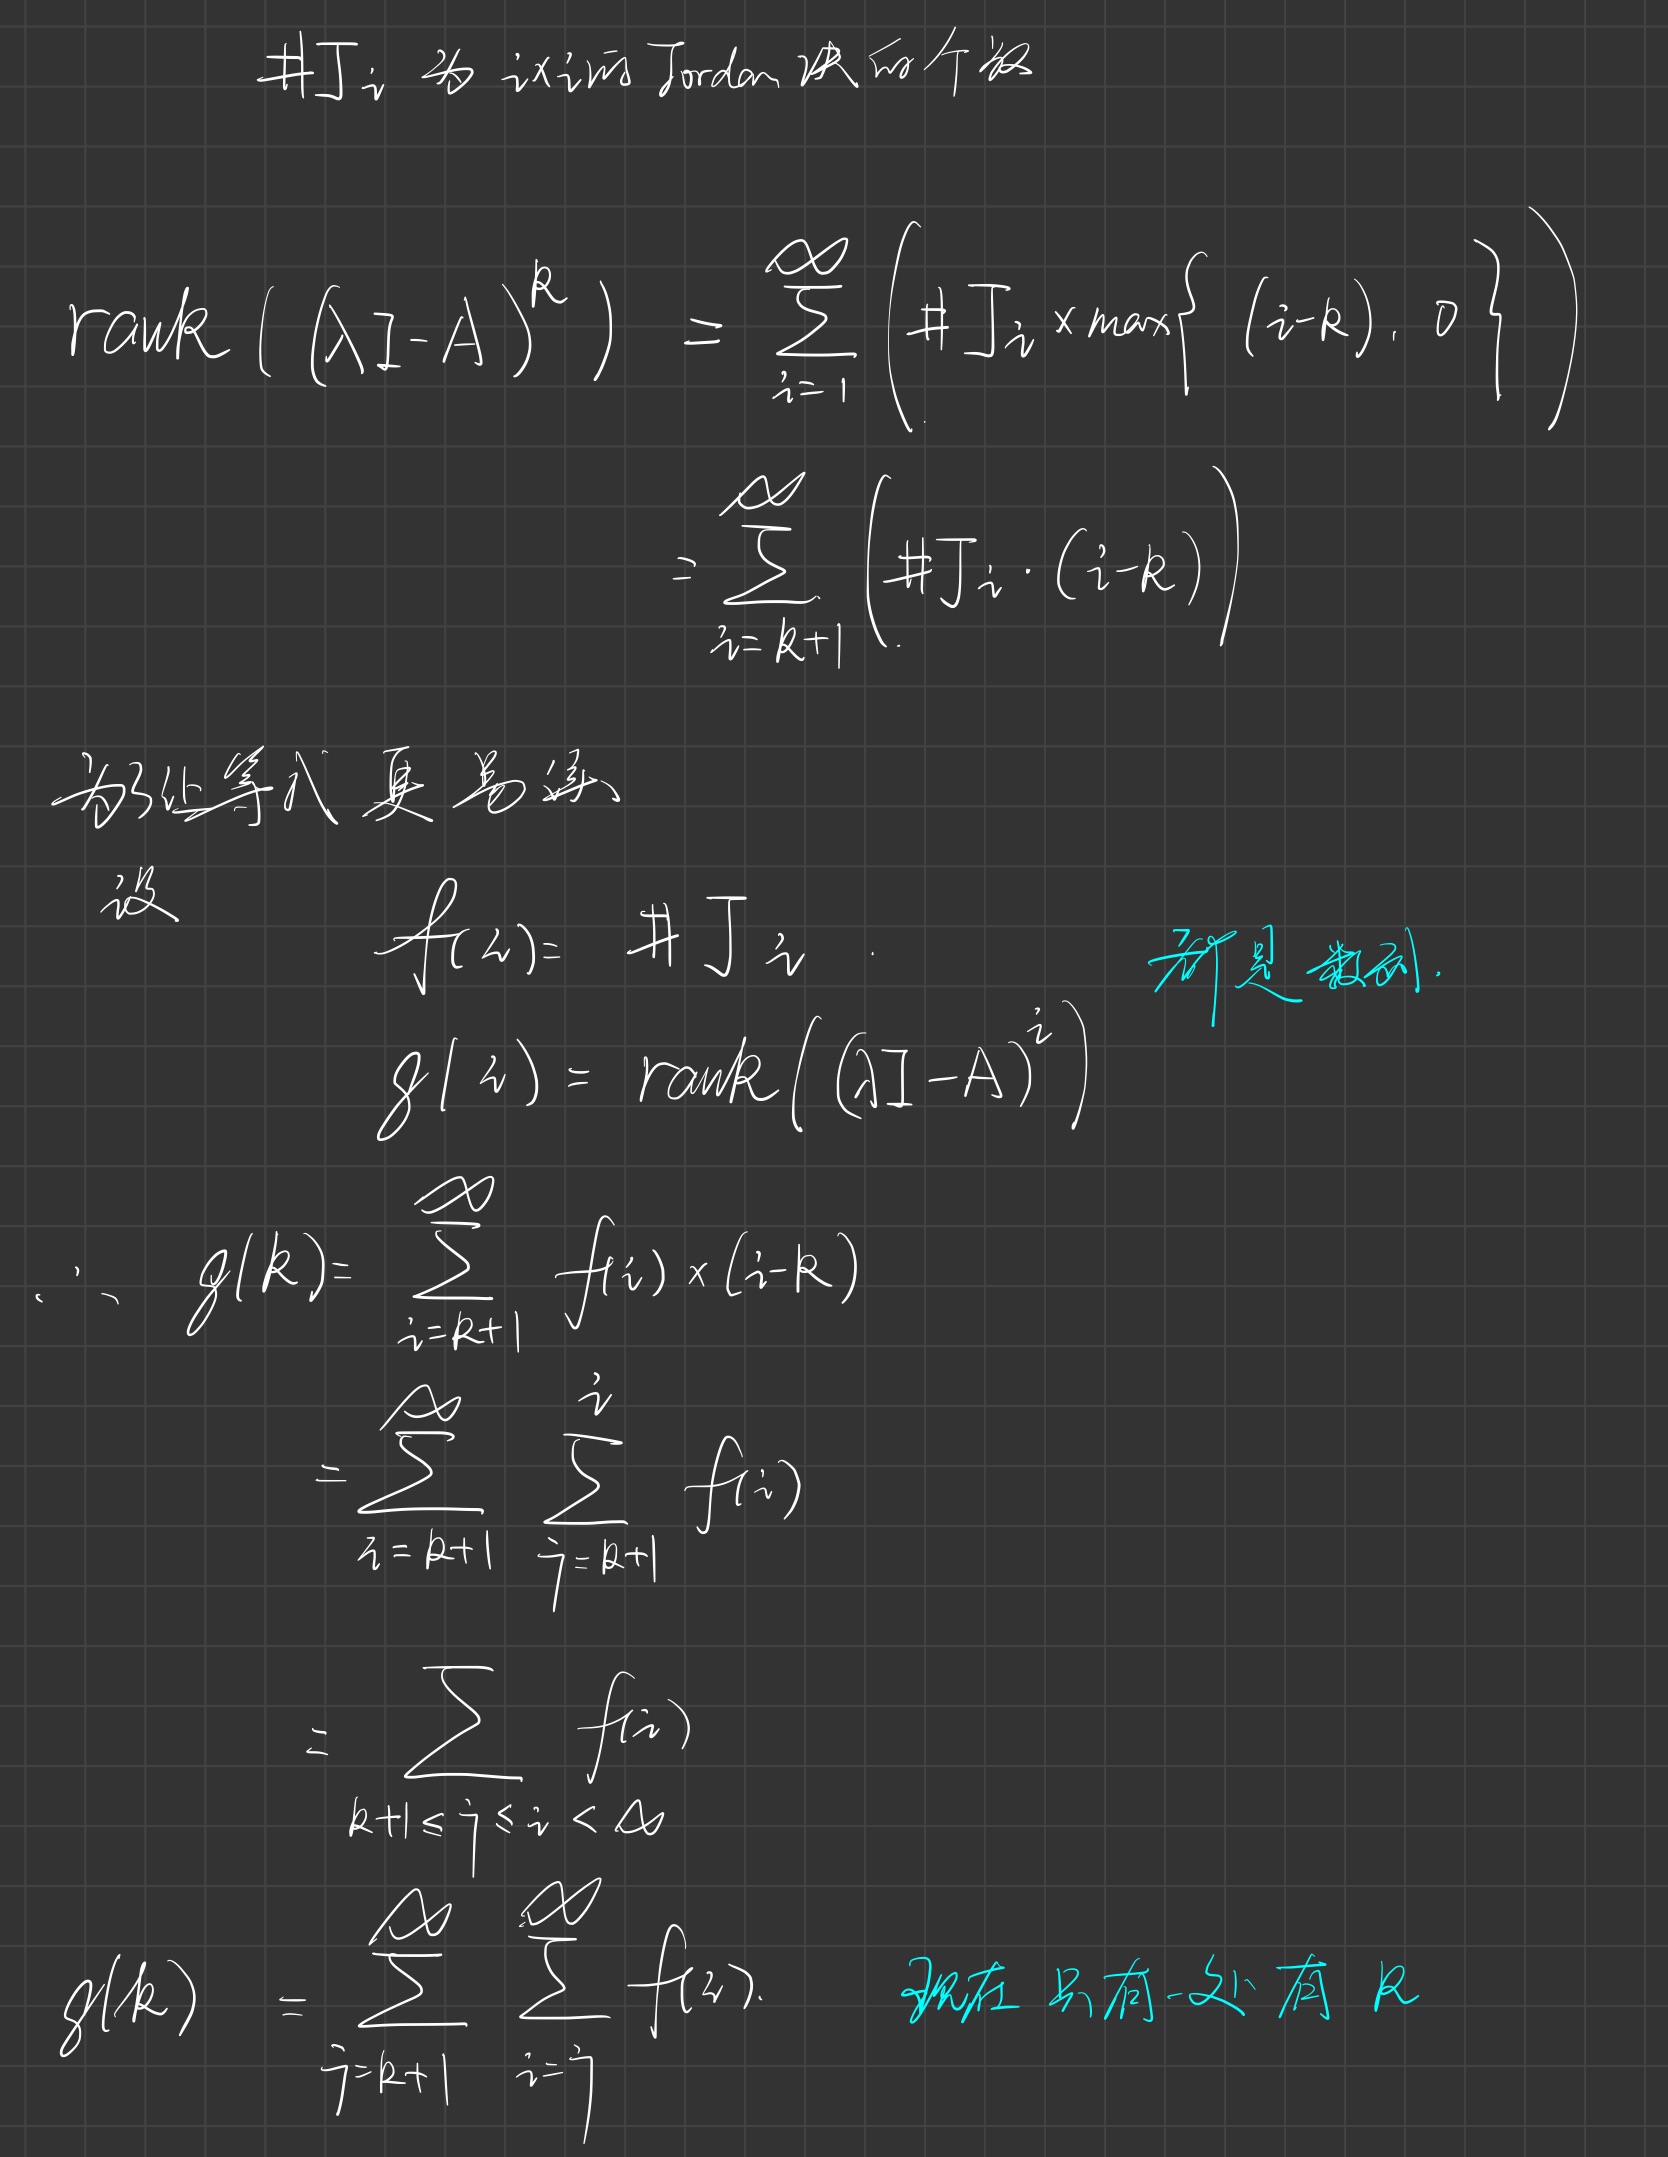 #J_i 为 i×i的 Jordan 块的个数
rank((λI-A)^k) = ∑_{i=1}^{∞} (#J_i × max{(i-k), 0})
= ∑_{i=k+1}^{∞} (#J_i · (i-k))
为了让等式更易读、
设 f(i) = #J_i . 都是数列.
g(i) = rank((λI-A)^i)
∴ g(k) = ∑_{i=k+1}^{∞} f(i) × (i-k)
= ∑_{i=k+1}^{∞} ∑_{j=k+1}^{i} f(i)
= ∑_{k+1≤j≤i<∞} f(i)
g(k) = ∑_{j=k+1}^{∞} ∑_{i=j}^{∞} f(i). 现在只有一处有 k